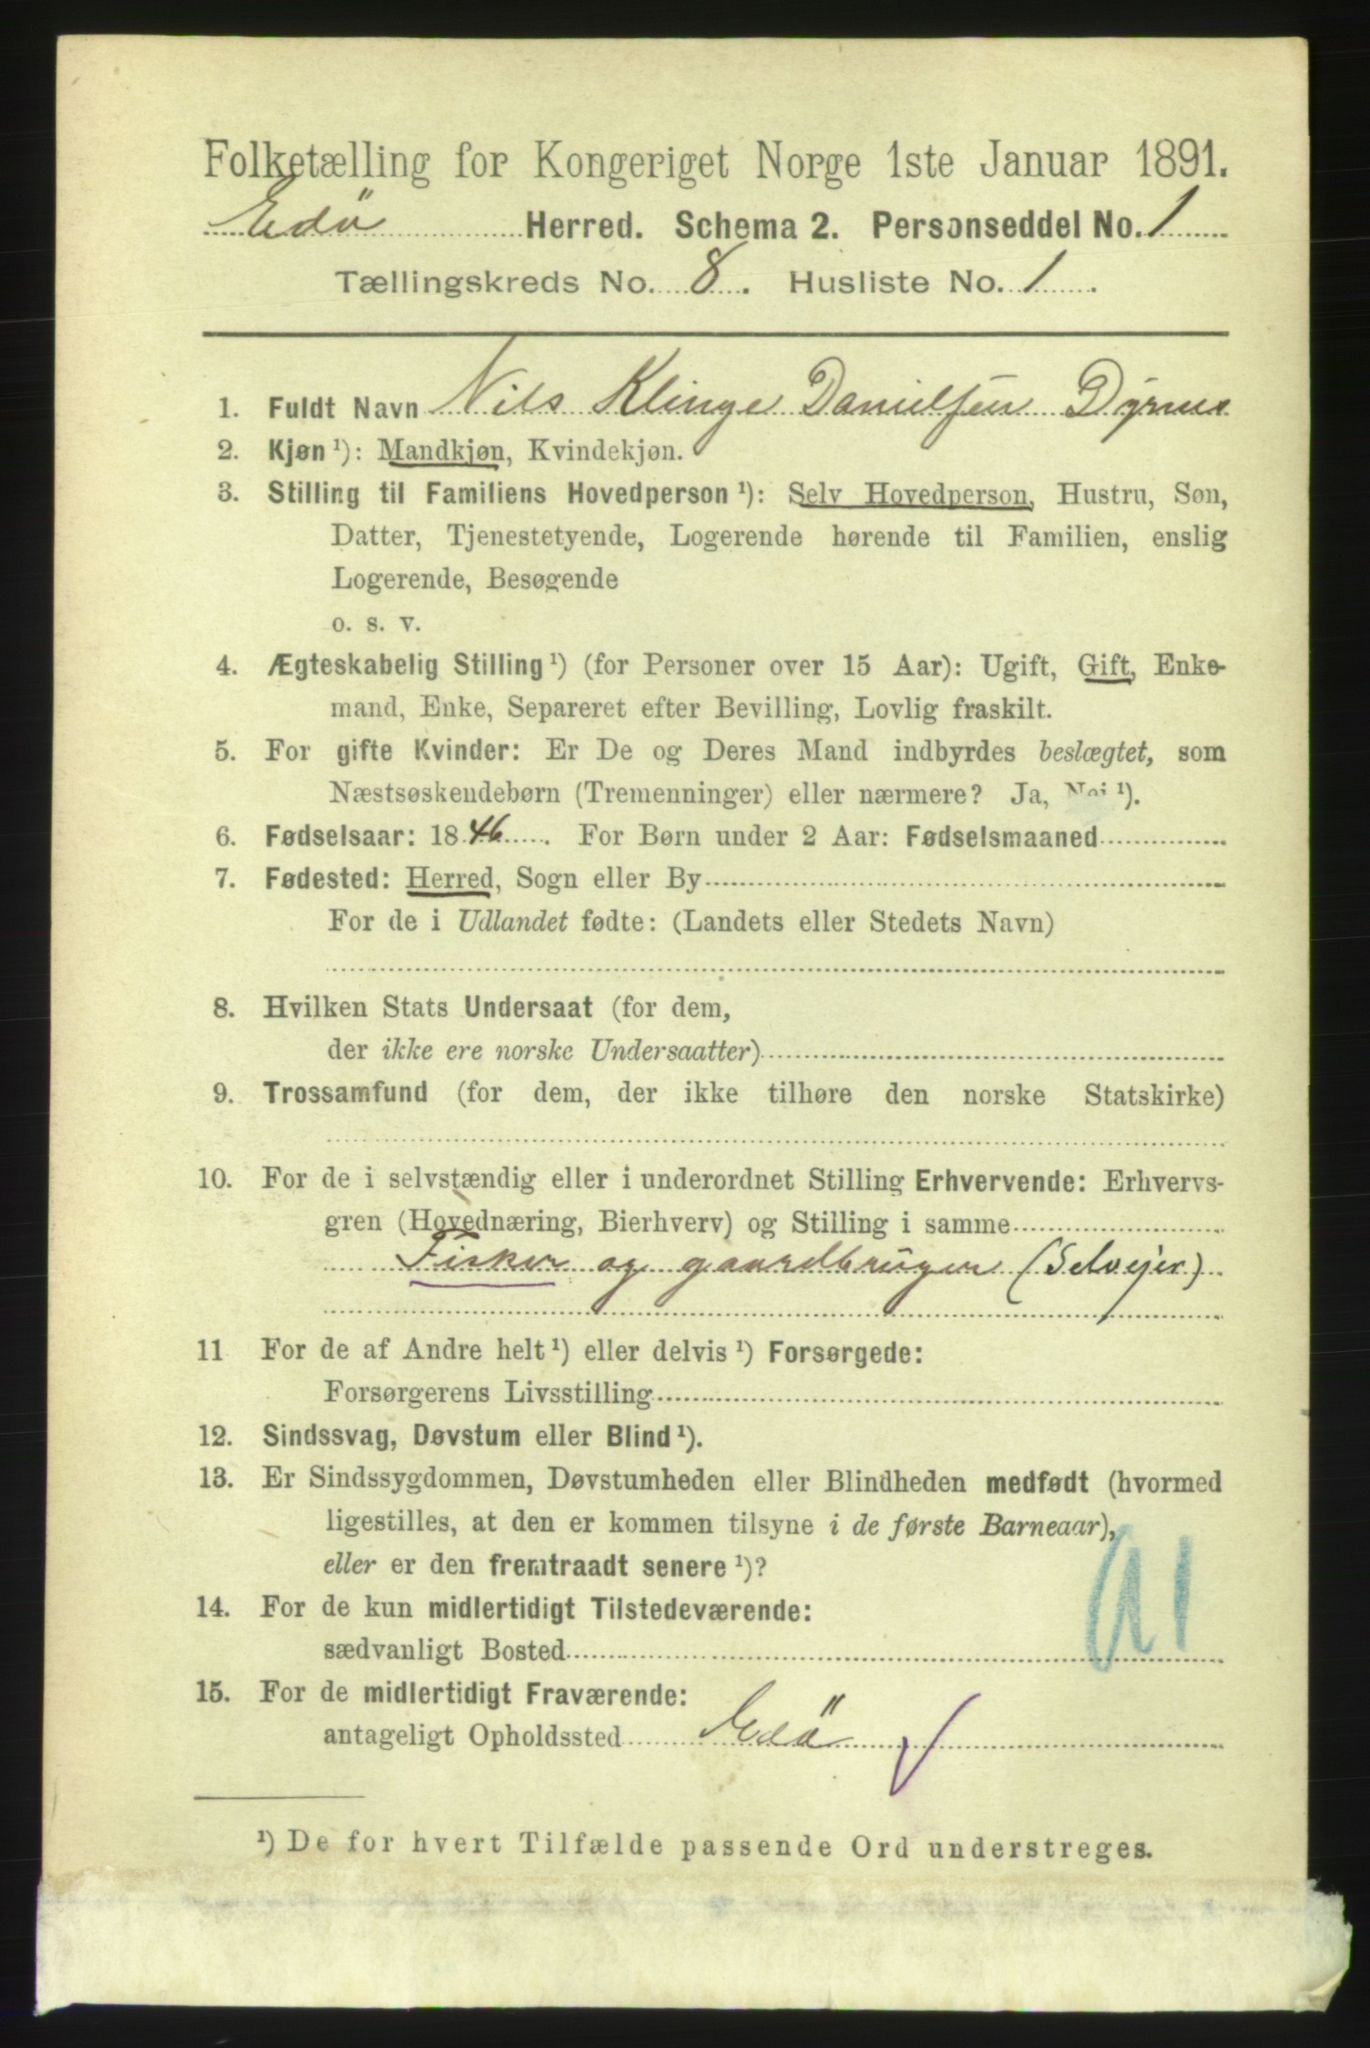 Folketælling for Kongeriget Norge 1ste Januar 1891.
Edö Herred. Schema 2. Personseddel No. 1
Tællingskreds No. 8. Husliste No. 1.
1. Fuldt Navn Nils Klinge Danielsen Dyrnes
2. Kjøn ¹): Mandkjøn, Kvindekjøn.
3. Stilling til Familiens Hovedperson ¹): Selv Hovedperson, Hustru, Søn,
Datter, Tjenestetyende, Logerende hørende til Familien, enslig
Logerende, Besøgende
o. s. v.
4. Ægteskabelig Stilling ¹) (for Personer over 15 Aar): Ugift, Gift, Enke-
mand, Enke, Separeret efter Bevilling, Lovlig fraskilt.
5. For gifte Kvinder: Er De og Deres Mand indbyrdes beslægtet, som
Næstsøskendebørn (Tremenninger) eller nærmere? Ja, Nei ¹).
6. Fødselsaar: 1846. For Børn under 2 Aar: Fødselsmaaned
7. Fødested: Herred, Sogn eller By
For de i Udlandet fødte: (Landets eller Stedets Navn)
8. Hvilken Stats Undersaat (for dem,
der ikke ere norske Undersaatter)
9. Trossamfund (for dem, der ikke tilhøre den norske Statskirke)
10. For de i selvstændig eller i underordnet Stilling Erhvervende: Erhvervs-
gren (Hovednæring, Bierhverv) og Stilling i samme
Fisker og gaardbruger (Selvejer)
11 For de af Andre helt ¹) eller delvis ¹) Forsørgede:
Forsørgerens Livsstilling
12. Sindssvag, Døvstum eller Blind ¹).
13. Er Sindssygdommen, Døvstumheden eller Blindheden medfødt (hvormed
ligestilles, at den er kommen tilsyne i de første Barneaar),
eller er den fremtraadt senere ¹)?
14. For de kun midlertidigt Tilstedeværende:
sædvanligt Bosted
15. For de midlertidigt Fraværende:
antageligt Opholdssted Edö
¹) De for hvert Tilfælde passende Ord understreges.